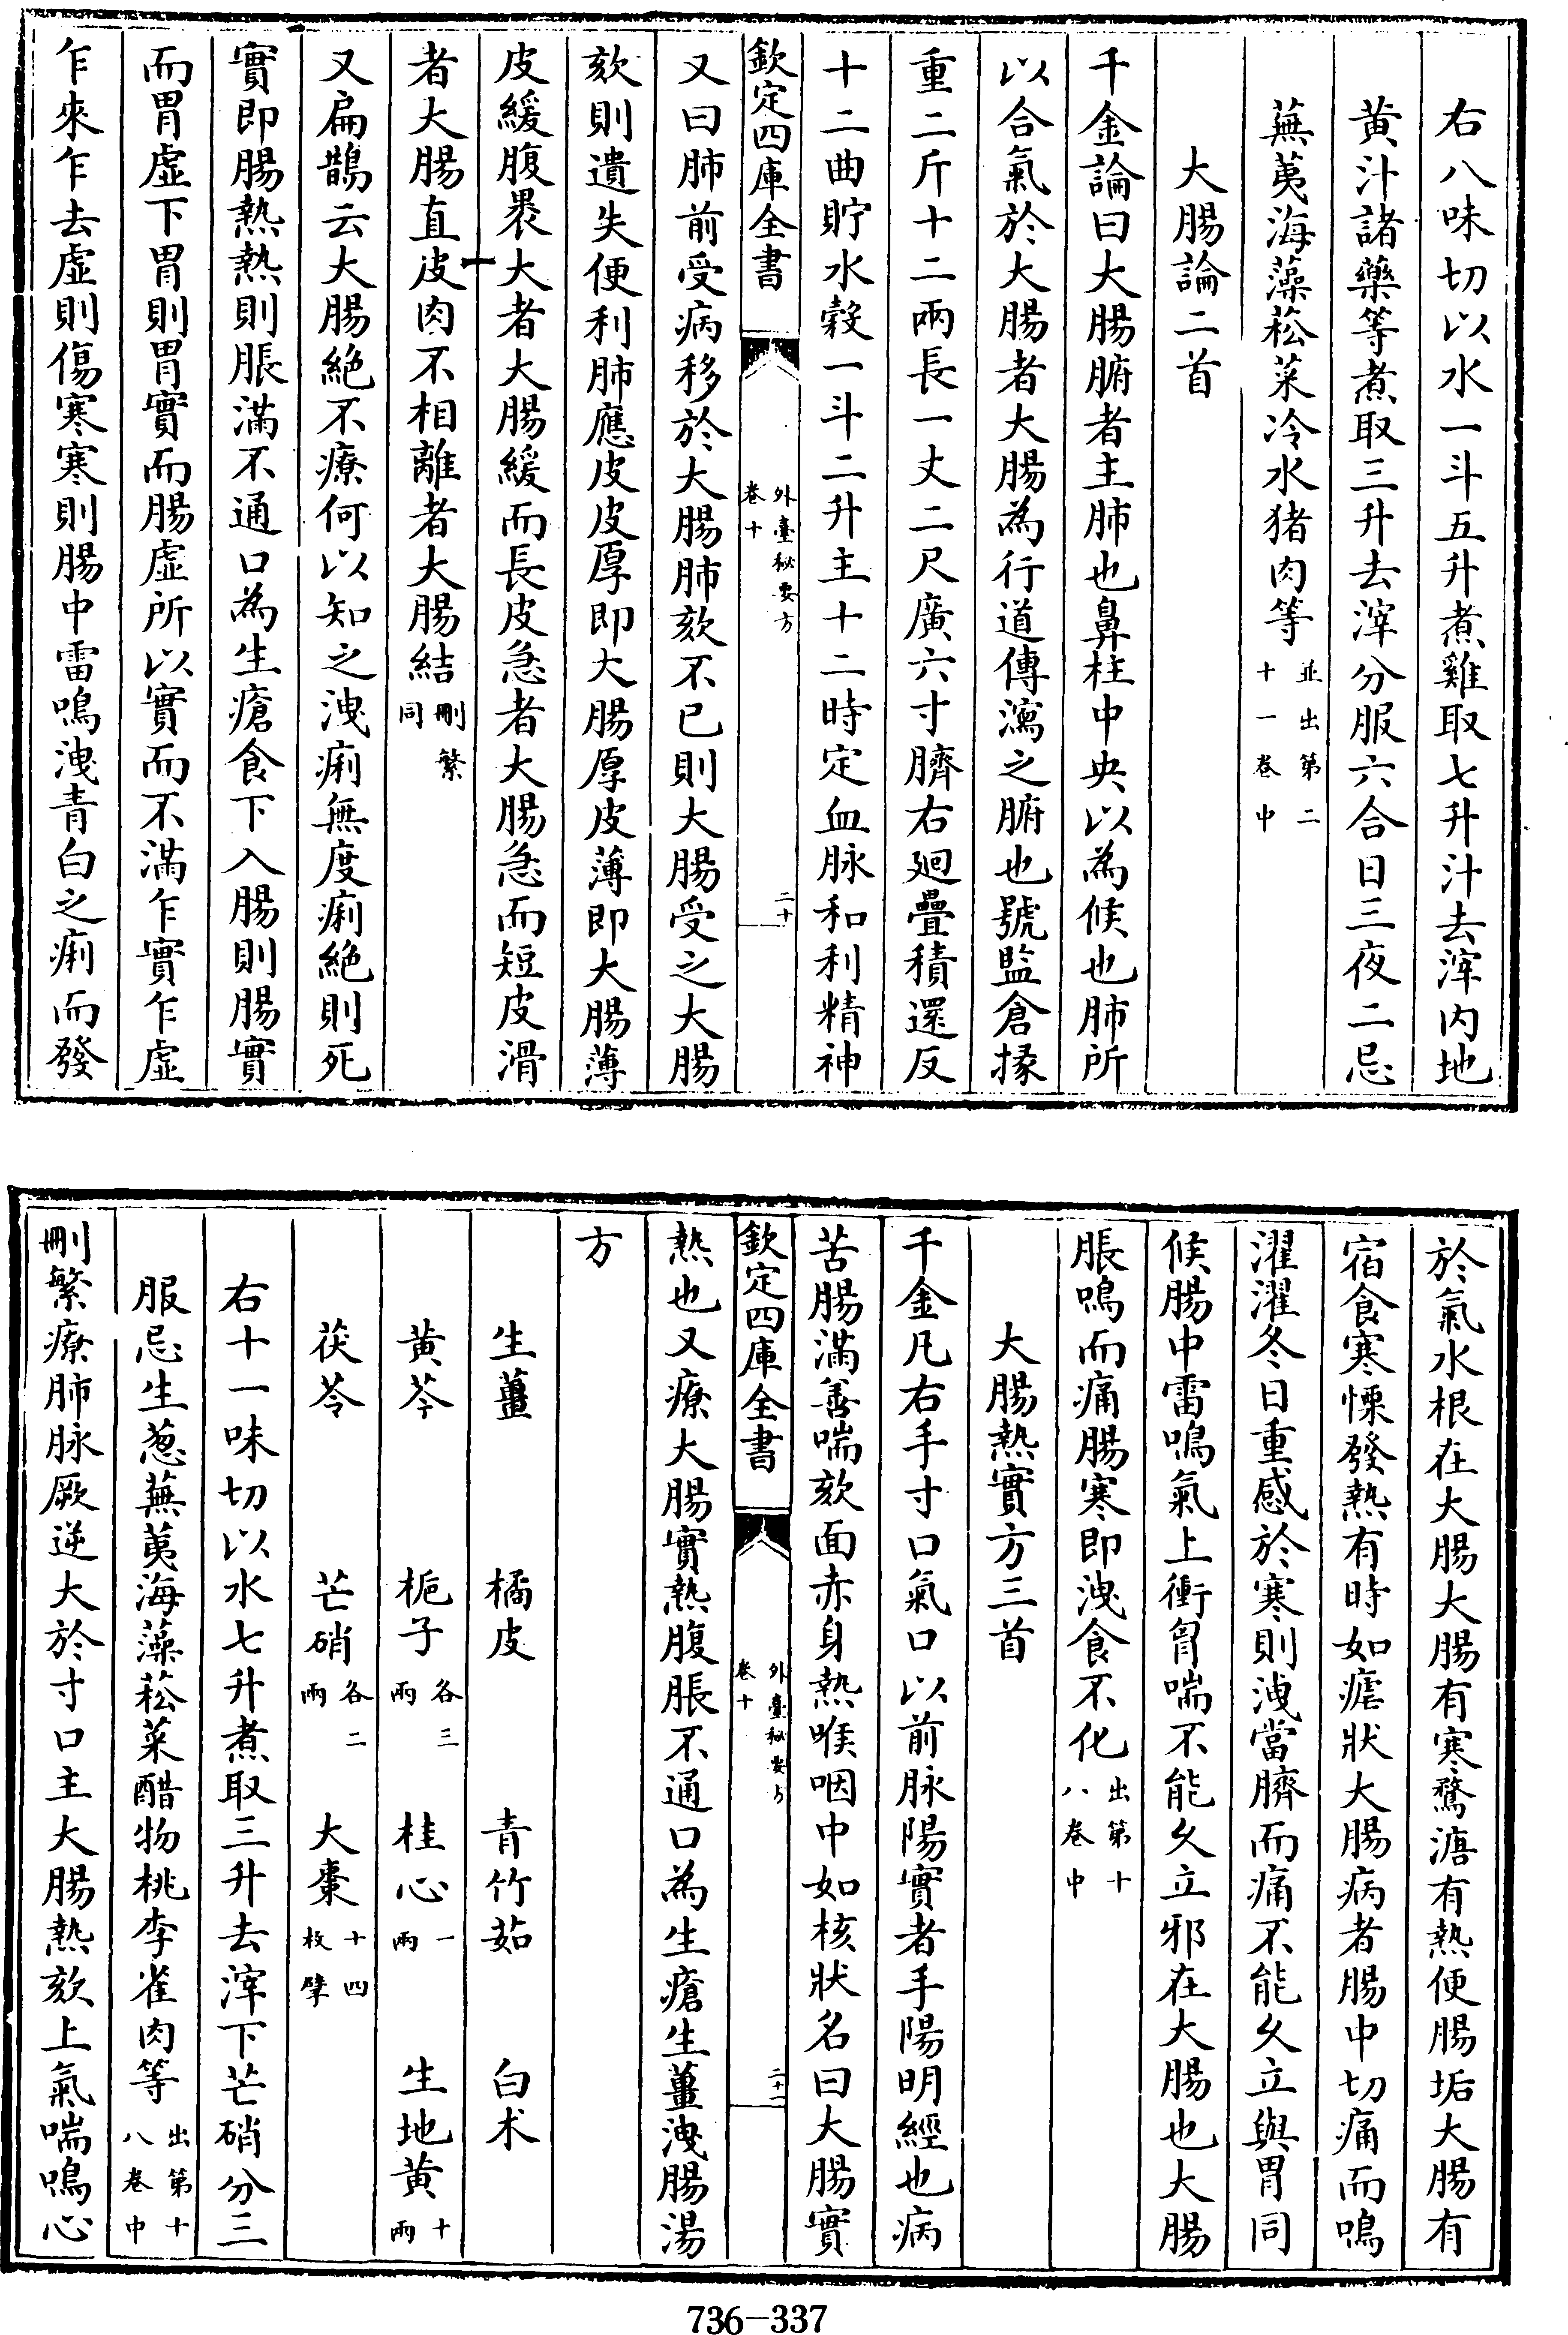 右八味切以水一斗五升煮雞取七升汁去滓内地
黄汁諸藥等煮取三升去滓分服六合日三夜二忌
蕪荑海藻菘菜冷水猪肉等並出第二十一卷中
大腸論二首
千金論曰大腸腑者主肺也鼻柱中央以為候也肺所
以合氣於大腸者大腸為行道傳瀉之腑也號監倉掾
重二斤十二兩長一丈二尺廣六寸臍右廻疊積還反
十二曲貯水穀一斗二升主十二時定血脉和利精神
欽定四庫全書
外臺秘要方
卷十
二十
又曰肺前受病移於大腸肺欬不已則大腸受之大腸
欬則遺失便利肺應皮皮厚即大腸厚皮薄即大腸薄
皮緩腹裹大者大腸緩而長皮急者大腸急而短皮滑
者大腸直皮肉不相離者大腸結刪繁同
又扁鵲云大腸絶不療何以知之洩痢無度痢絶則死
實即腸熱熱則脹滿不通口為生瘡食下入腸則腸實
而胃虚下胃則胃實而腸虚所以實而不滿乍實乍虚
乍來乍去虚則傷寒寒則腸中雷鳴洩青白之痢而發
於氣水根在大腸大腸有寒鶩溏有熱便腸垢大腸有
宿食寒慄發熱有時如瘧狀大腸病者腸中切痛而鳴
濯濯冬日重感於寒則洩當臍而痛不能久立與胃同
候腸中雷鳴氣上衝胷喘不能久立邪在大腸也大腸
脹鳴而痛腸寒即洩食不化出第十八卷中
大腸熱實方三首
千金凡右手寸口氣口以前脉陽實者手陽明經也病
苦腸滿善喘欬面赤身熱喉咽中如核狀名曰大腸實
欽定四庫全書
外臺秘要方
卷十
二十一
熱也又療大腸實熱腹脹不通口為生瘡生薑洩腸湯
方
生薑 橘皮 青竹茹 白术
黄芩 梔子各三兩 桂心一兩 生地黄十兩
茯苓 芒硝各二兩 大棗十四枚擘
右十一味切以水七升煮取三升去滓下芒硝分三
服忌生葱蕪荑海藻菘菜醋物桃李雀肉等出第十八卷中
刪繁療肺脉厥逆大於寸口主大腸熱欬上氣喘鳴心
736-337